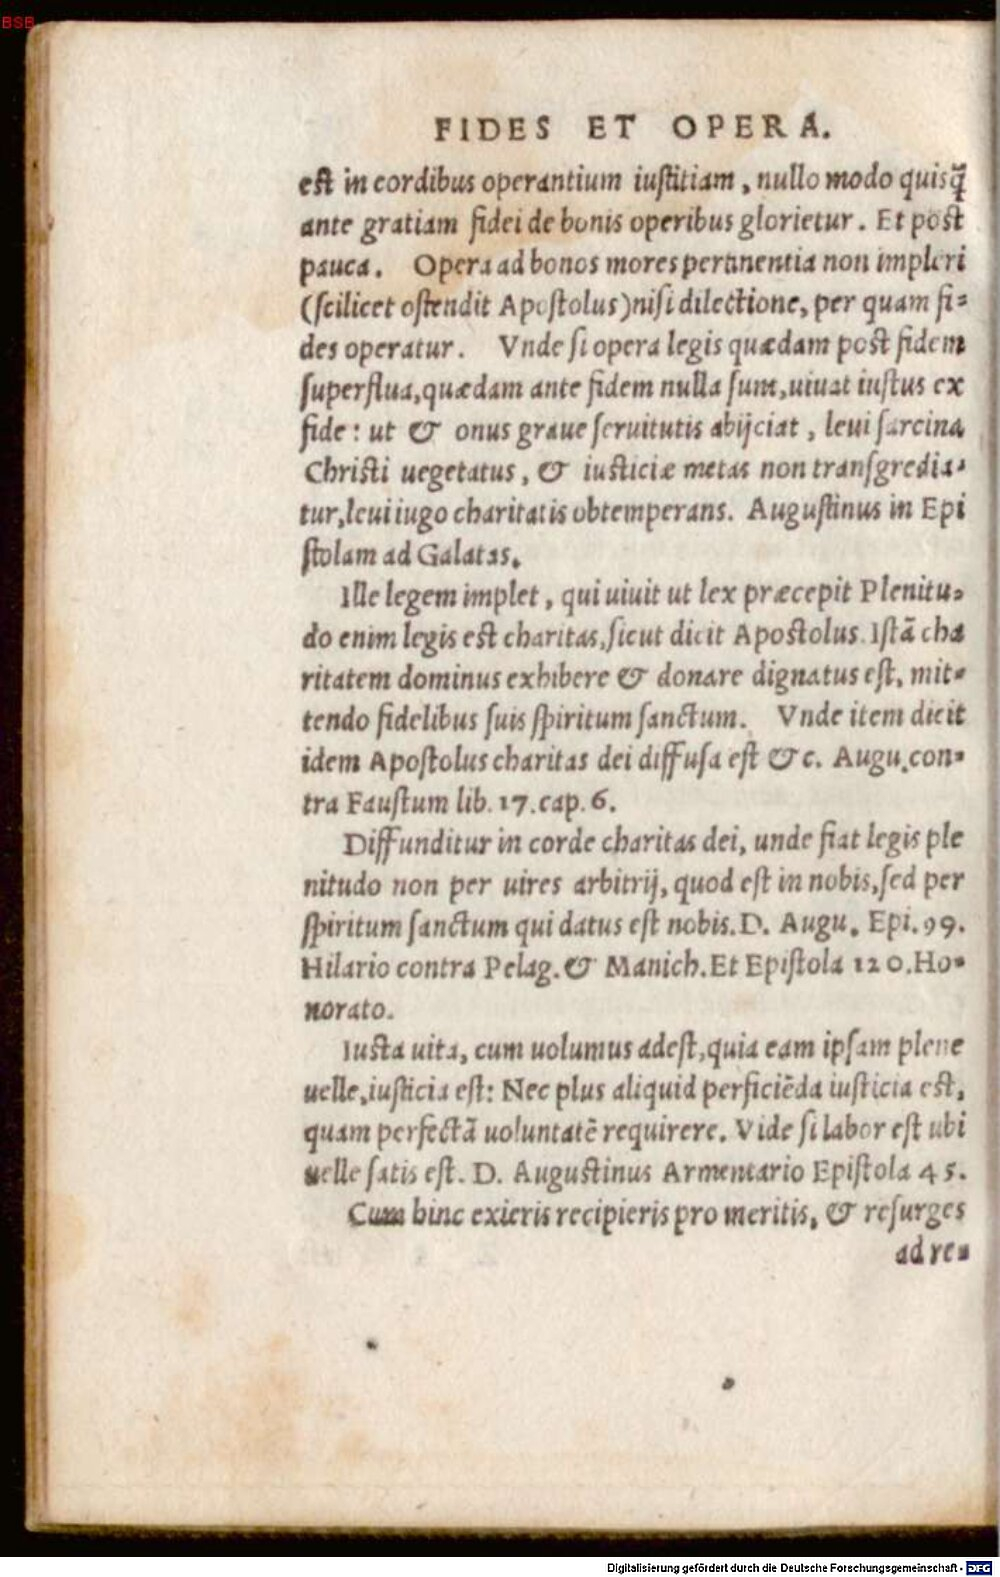 BSB
FIDES ET OPERA.
est in cordibus operantium iustitiam, nullo modo quisq̃
ante gratiam fidei de bonis operibus glorietur. Et post
pauca. Opera ad bonos mores pertinentia non impleri
(scilicet ostendit Apostolus) nisi dilectione, per quam fi-
des operatur. Vnde si opera legis quædam post fidem
superflua, quædam ante fidem nulla sunt, uiuat iustus ex
fide: ut & onus graue seruitutis abijciat, leui sarcina
Christi uegetatus, & iusticiæ metas non transgredia-
tur, leui iugo charitatis obtemperans. Augustinus in Epi
stolam ad Galatas.
Ille legem implet, qui uiuit ut lex præcepit Plenitu-
do enim legis est charitas, sicut dicit Apostolus. Istã cha
ritatem dominus exhibere & donare dignatus est, mit-
tendo fidelibus suis spiritum sanctum. Vnde item dicit
idem Apostolus charitas dei diffusa est &c. Augu. con-
tra Faustum lib. 17. cap. 6.
Diffunditur in corde charitas dei, unde fiat legis ple
nitudo non per uires arbitrij, quod est in nobis, sed per
spiritum sanctum qui datus est nobis. D. Augu. Epi. 99.
Hilario contra Pelag. & Manich. Et Epistola 120. Ho-
norato.
Iusta uita, cum uolumus adest, quia eam ipsam plene
uelle, iusticia est: Nec plus aliquid perficiẽda iusticia est,
quam perfectã uoluntatẽ requirere. Vide si labor est ubi
uelle satis est. D. Augustinus Armentario Epistola 45.
Cum hinc exieris recipieris pro meritis, & resurges
ad re-
Digitalisierung gefördert durch die Deutsche Forschungsgemeinschaft - DFG